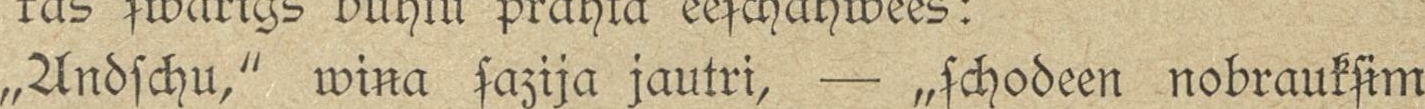 ras ſwarigs buhtu prahtā eeſchahwees:
„Andſchu,“ wiņa ſazija jautri, — „ſchodeen nobraukſim